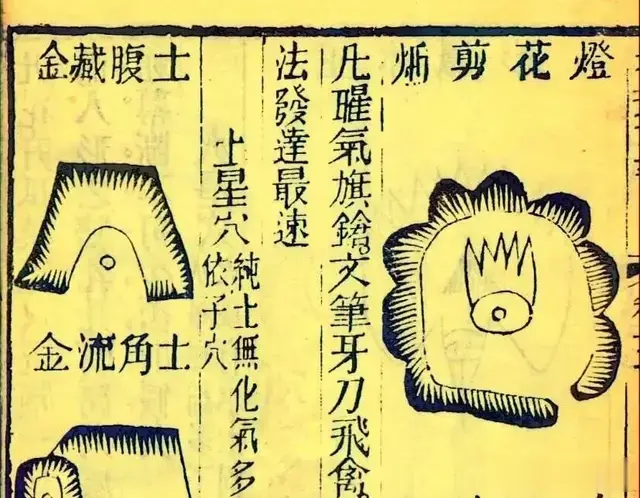 燈花剪
凡曜氣旗鎗。文筆牙刀飛禽。
法發達最速
土星穴
純土無化氣多
依子穴
土腹藏金
土角流金